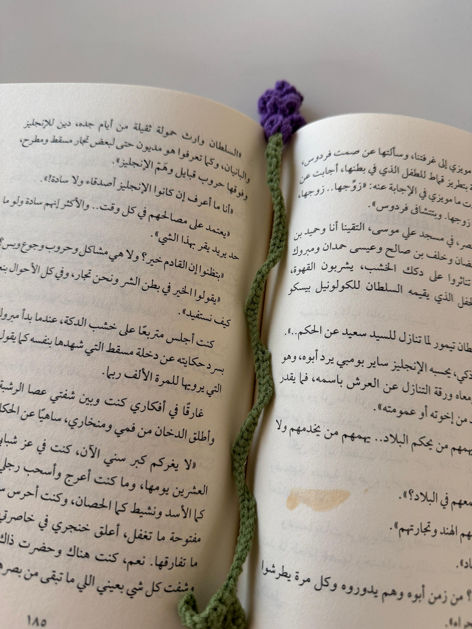 مويزي إلى غرفتنا، وسألتها عن صمت فردوس،
بتطريز قماط للطفل الذي في بطنها، أجابت عن
ت ما مويزي في الإجابة عنه: «زوّجها.. زوجها،
زوجها. وبتتشافى فردوس».
في مسجد علي موسى، التقينا أنا وحميد بن
ضان وخلف بن صالح وعيسى حمدان ومبروك
تناثروا على دكك الخشب، يشربون القهوة،
الذي يقيمه السلطان للكولونيل بيسكو
طان تيمور لما تنازل للسيد سعيد عن الحكم..».
ذكي، يحسبه الإنجليز ساير بومبي يرد أبوه، وهو
معاه ورقة التنازل عن العرش باسمه، فما يقدر
من إخوته أو عمومته».
همهم من يحكم البلاد.. يهمهم من يخدمهم ولا
معهم في البلاد؟».
هم الهند وتجارتهم».
من زمن أبوه وهم يدوروه وكل مرة يطرشوا
«السلطان وارث حمولة ثقيلة من أيام جده، دين للإنجليز
والبانيان، وكما تعرفوا هو مديون حتى لبعض تجار مسقط ومطرح،
وفوقها حروب قبايل وهَمّ الإنجليز».
«أنا ما أعرف إن كانوا الإنجليز أصدقاء ولا سادة!».
«يعتمد على مصالحهم في كل وقت.. والأكثر إنهم سادة ولو ما
حد يريد يقر بهذا الشي».
«بتظنوا إن القادم خير؟ ولا هي مشاكل وحروب وجوع وبس؟
«يقولوا الخير في بطن الشر ونحن تجار، وفي كل الأحوال
كيف نستفيد».
كنت أجلس متربعًا على خشب الدكة، عندما بدأ مبروك
بسرد حكايته عن دخلة مسقط التي شهدها بنفسه كما يقول
التي يرويها للمرة الألف ربما.
غارقًا في أفكاري كنت وبين شفتي عصا الرشبة
وأطلق الدخان من فمي ومنخاري، ساهيًا عن
«لا يغركم كبر سني الآن، كنت في عز
العشرين يومها، وما كنت أعرج وأسحب رجلي
كما الأسد ونشيط كما الحصان، وكنت أحرس
مفتوحة ما تغفل، أعلق خنجري في خاصرتي
ما تفارقها. نعم، كنت هناك وحضرت ذاك
وشفت كل شي بعيني اللي ما تبقى من
١٨٥